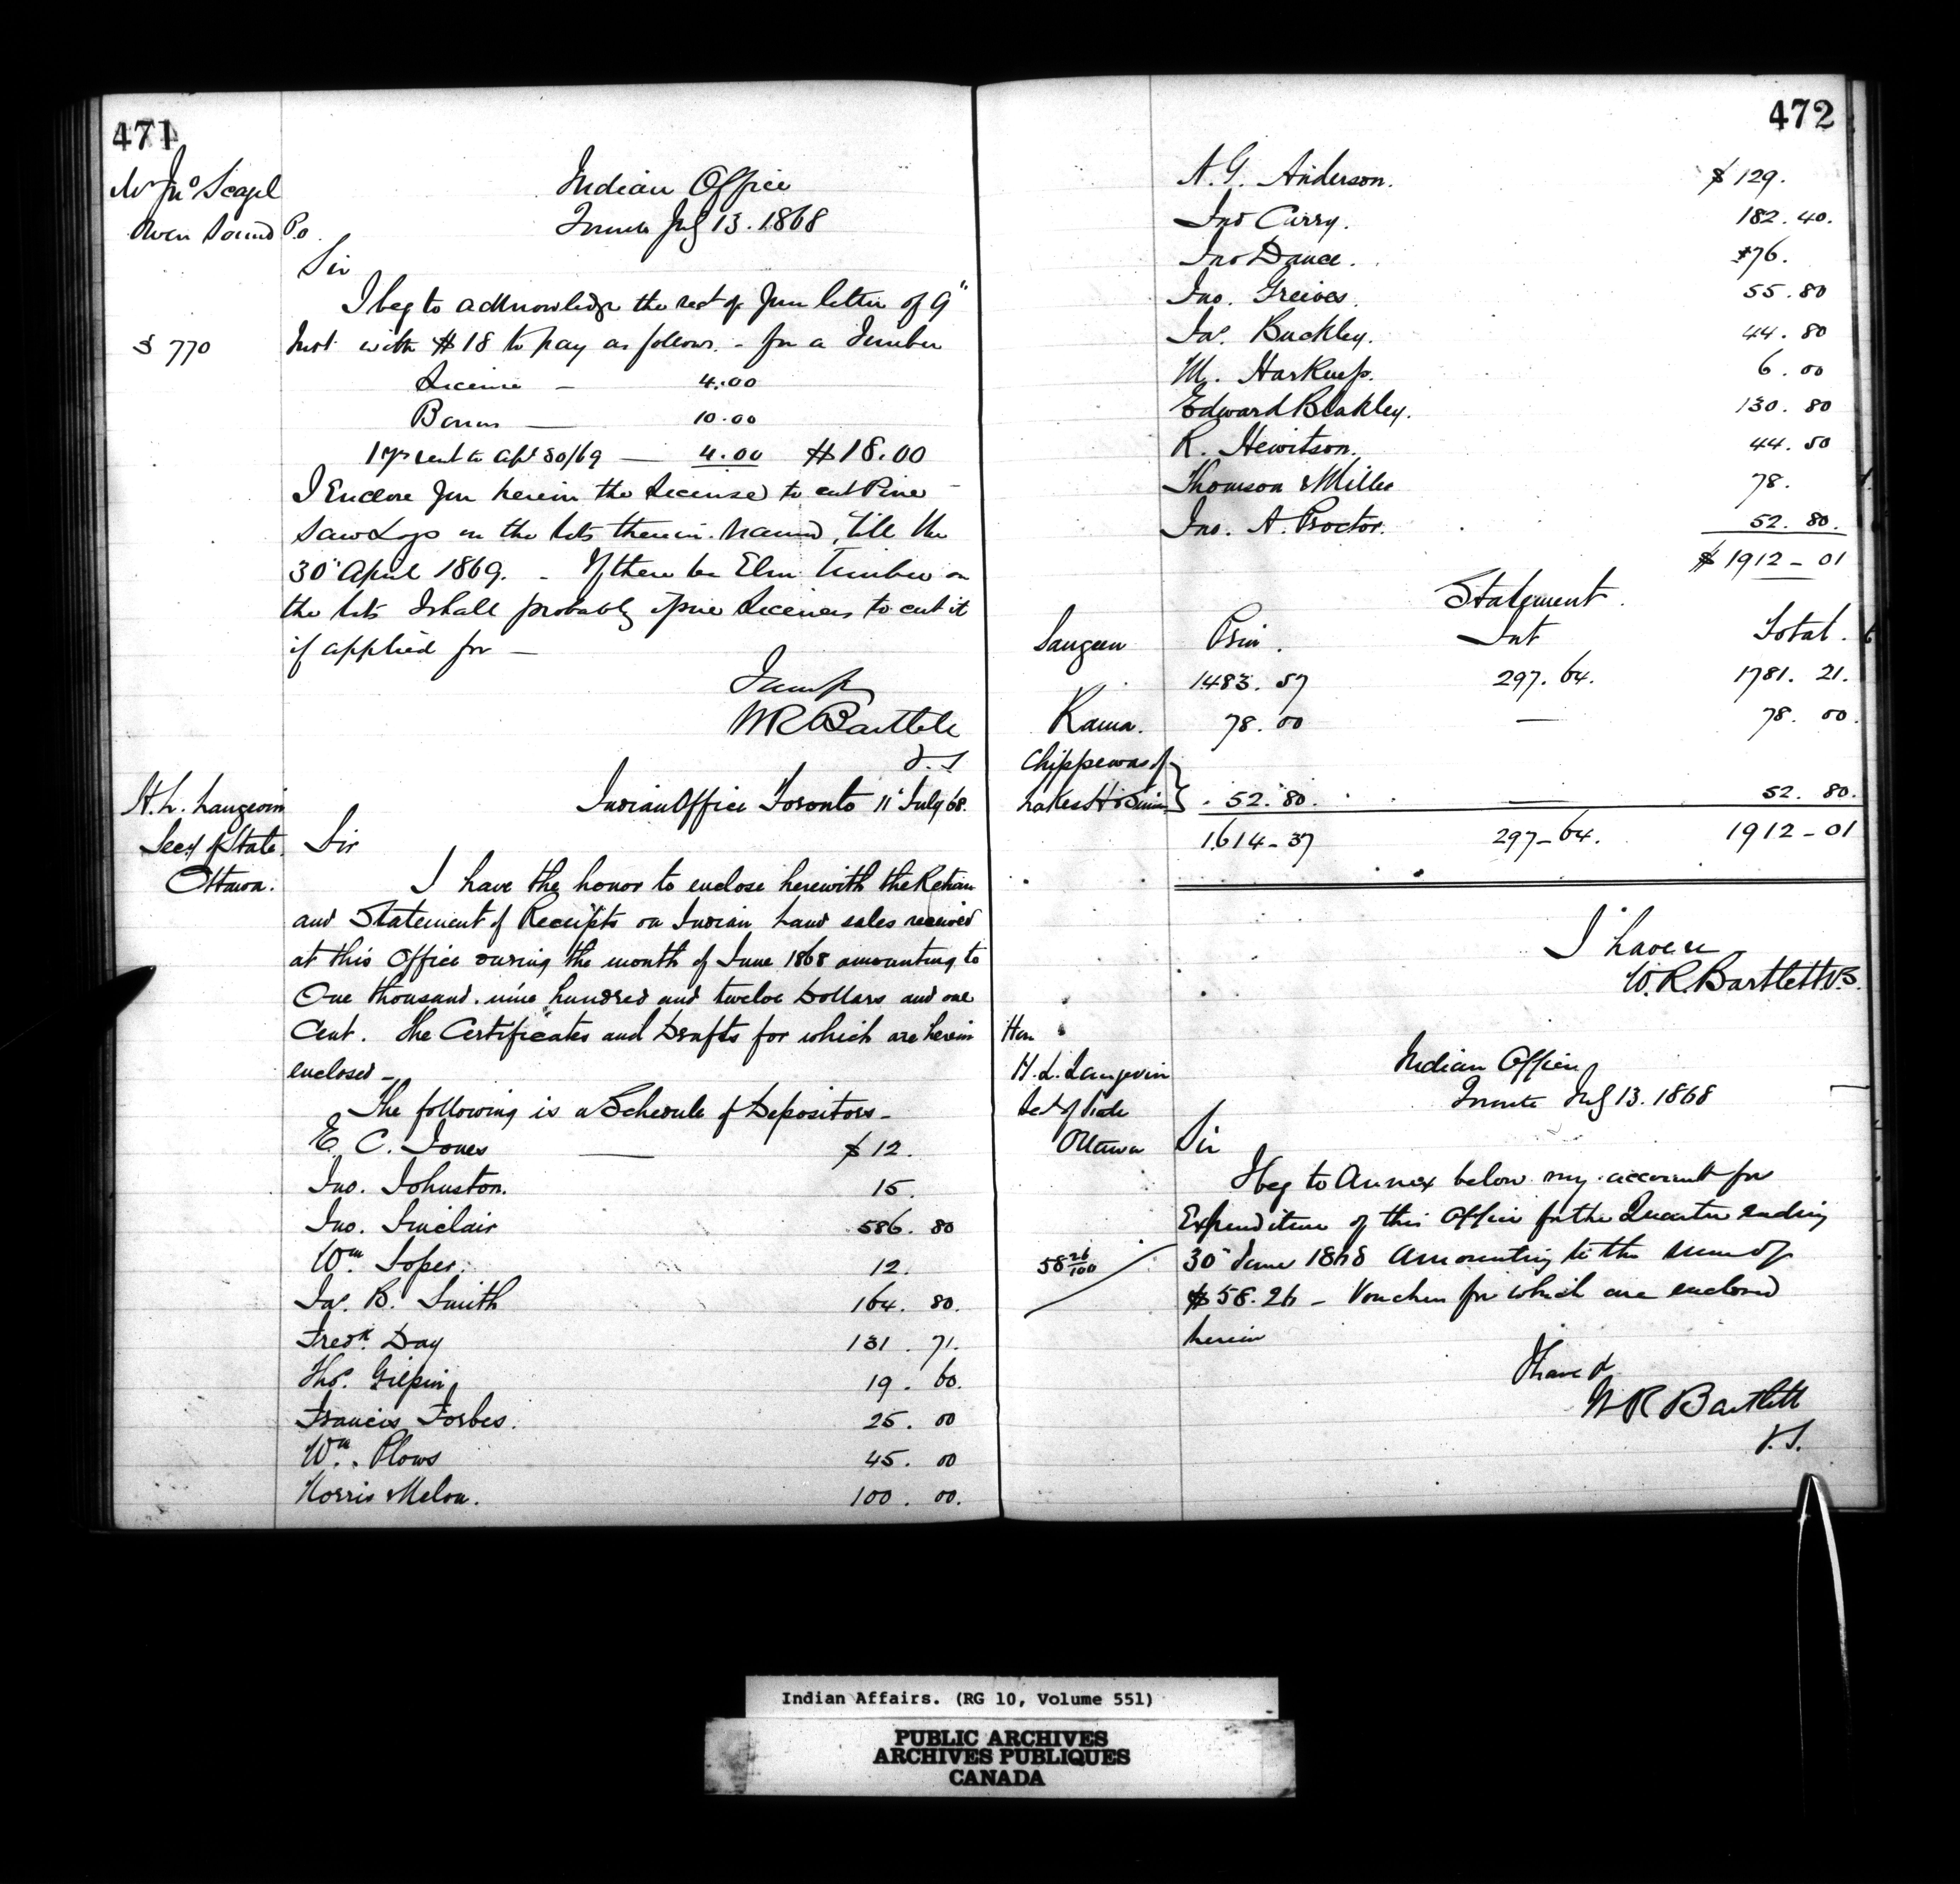 471
Mr Jno Seagel
Owen Sound P.o.
Indian Office
Toronto July 13. 1868
Sir
I beg to acknowledge the rect of your letter of 9"
$ 770
Inst. with $18 to pay as follows. - for a Timber
License — 4.00
Bonus — 10.00
1 yrs rent to Apl 30/69 — 4.00 $18.00
I Enclose you herein the License to cut Pine
Saw Logs on the lots therein named, till the
30" April 1869. - If there be Elm Timber on
the lots I shall probably issue Licenses to cut it
if applied for —
WR Bartlett
V.S
H. L. Langevin
Secy of State.
Ottawa.
Indian Office Toronto 11" July 68.
Sir
I have the honor to enclose herewith the Return
and Statement of Receipts on Indian Land sales received
at this Office during the month of June 1868 amounting to
One thousand. nine hundred and twelve Dollars and one
Cent. The Certificates and Drafts for which are herein
enclosed -
The following is a Schedule of Depositors -
E. C. Jones — $ 12.
Jno. Johnston. 15.
Jno. Sinclair 586. 80
Wm. Soper. 12.
Jas. B. Smith 164. 80.
Fredk. Day 131. 71.
Thos. Gilpin 19. 60.
Francis Forbes. 25. 00
Wm. Plows 45. 00
Norris Melon. 100. 00.
472
A. G. Anderson. $ 129.
Jno Curry. 182. 40.
Jno Dance. 76.
Jno. Greives. 55. 80
Jas. Buckley. 44. 80
M. Harkup. 6. 00
Edward Blakley. 130. 80
R. Hewitson. 44. 50
Thomson & Miller 78.
Jno. A. Proctor. 52. 80.
$ 1912 - 01
Statement.
Saugeen Prin. Int Total.
1483. 57 297. 64. 1781. 21.
Rama. 78. 00 — 78. 00.
Chippewas of
Lakes H & Simcoe } 52. 80. — 52. 80.
1614 - 37 297 - 64. 1912 - 01
I have &c
W. R. Bartlett V.S.
Hon
H. L. Langevin
Sec of State
Ottawa
Indian Office
Toronto July 13. 1868
Sir
I beg to Annex below my account for
Expenditure of this Office for the Quarter ending
58 26/100
30" June 1868 amounting to the sum of
$ 58.26 - Vouchers for which are enclosed
herein
I have &
W R Bartlett
V.S.
Indian Affairs. (RG 10, Volume 551)
PUBLIC ARCHIVES
ARCHIVES PUBLIQUES
CANADA